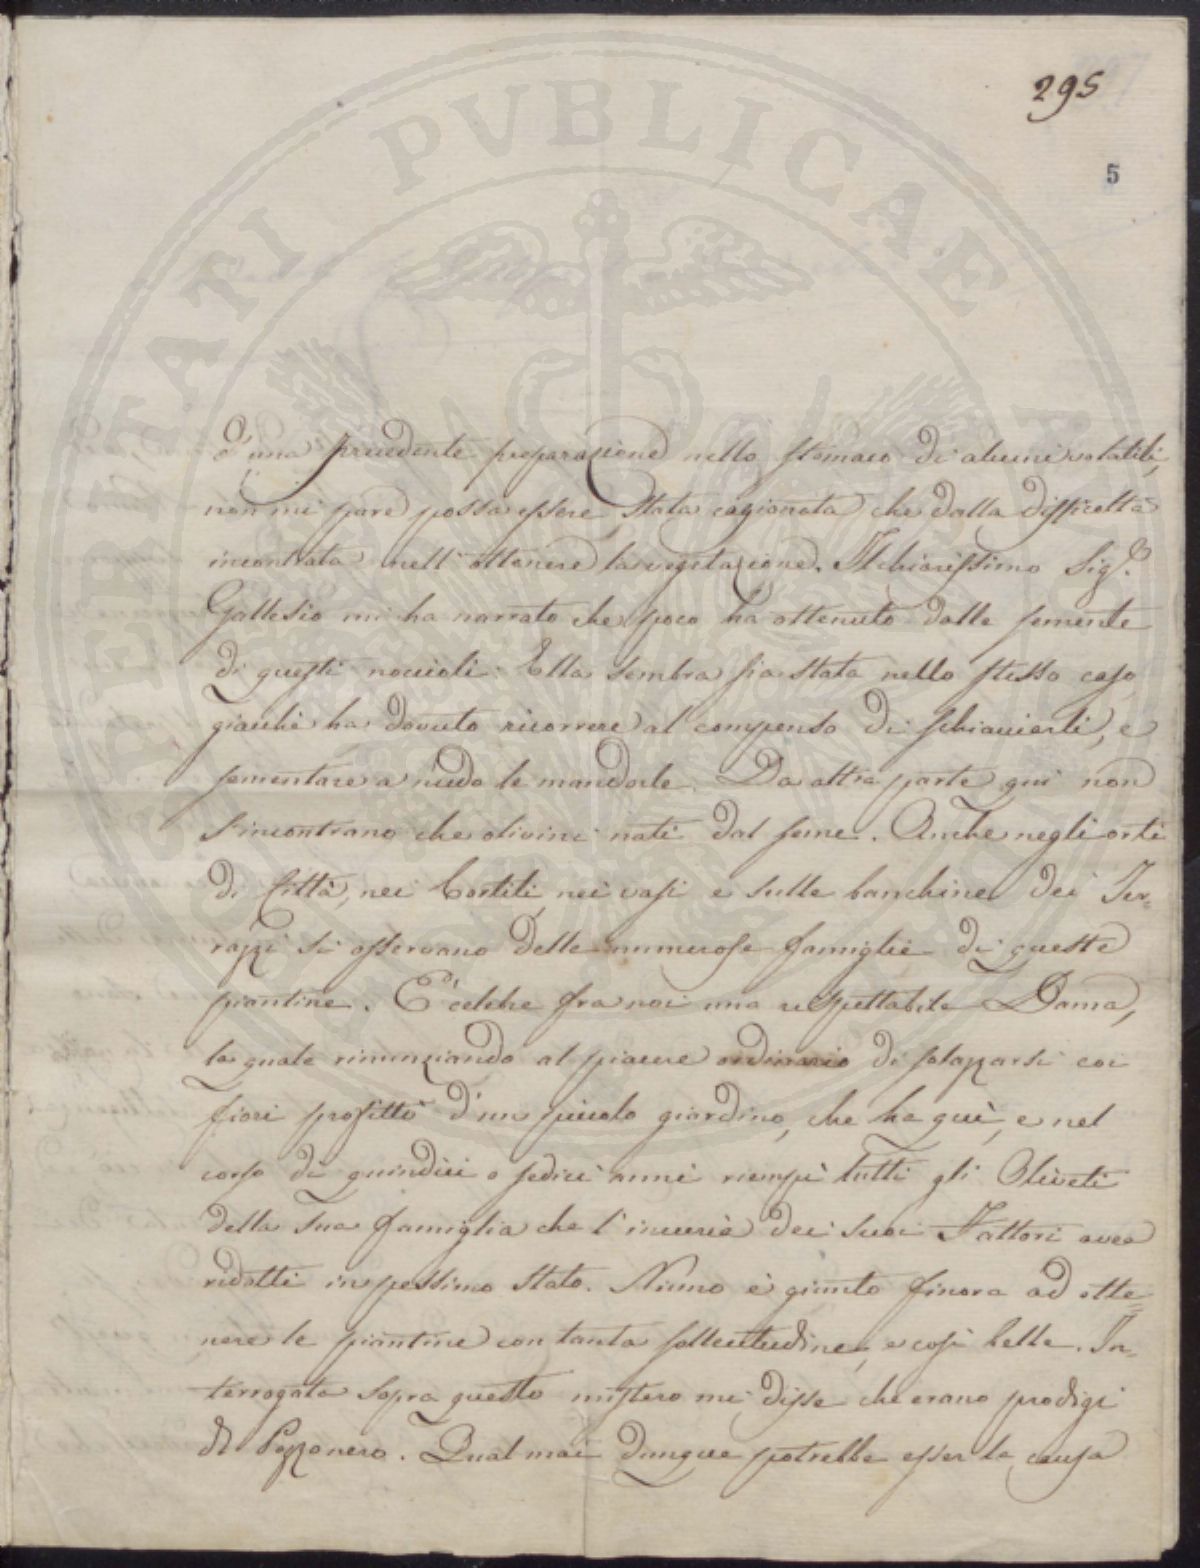 295
5
PROSPERITATI PVBLICAE AVGENDAE
o una precedente preparazione nello stomaco di alcuni volatili,
non mi pare possa essere stata cagionata che dalla difficoltà
incontrata nell'ottenere la vegetazione. Il chiarissimo Sig.r
Gallesio mi ha narrato che poco ha ottenuto dalle semente
di questi noccioli: Ella sembra sia stata nello stesso caso
giacchè ha dovuto ricorrere al compenso di schiacciarli, e
sementare a nudo le mandorle. Da altra parte quì non
s'incontrano che olivini nati dal seme. Anche negli orti
di Città, nei Cortili, nei vasi e sulle banchine dei Ter=
razzi si osservano delle numerose famiglie di queste
piantine. È celebre fra noi una rispettabile Dama,
la quale rinunziando al piacere ordinario di solazzarsi coi
fiori profittò d'un piccolo giardino, che ha quì, e nel
corso di quindici o sedici anni riempì tutti gli Oliveti
della sua famiglia che l'incuria dei suoi Fattori avea
ridotti in pessimo stato. Niuno è giunto finora ad otte=
nere le piantine con tanta sollecitudine, e così belle. In=
terrogata sopra questo mistero mi disse che erano prodigi
di Pozzonero. Qual mai dunque potrebbe esser la causa